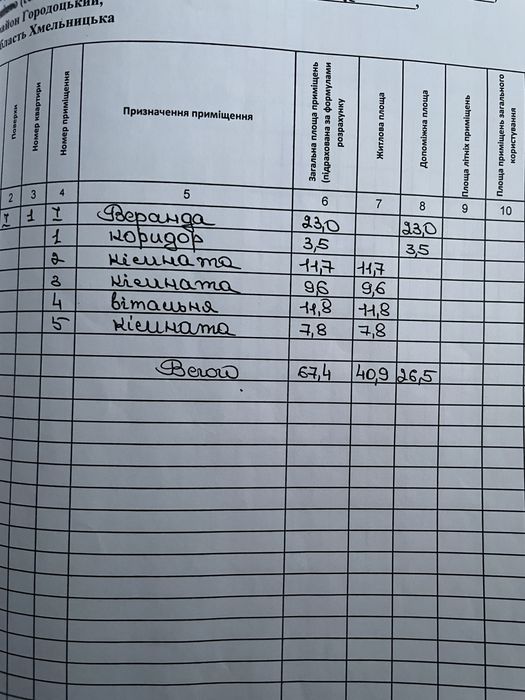 район Городоцький,
область Хмельницька
Поверхи Номер квартири Номер приміщення Призначення приміщення Загальна площа приміщень (підрахована за формулами розрахунку Житлова площа Допоміжна площа Площа літніх приміщень Площа приміщень загального користування
2 3 4 5 6 7 8 9 10
I 1 I Веранда 23,0 23,0
1 коридор 3,5 3,5
2 кімната 11,7 11,7
3 кімната 9,6 9,6
4 вітальня 11,8 11,8
5 кімната 7,8 7,8
Всього 67,4 40,9 26,5